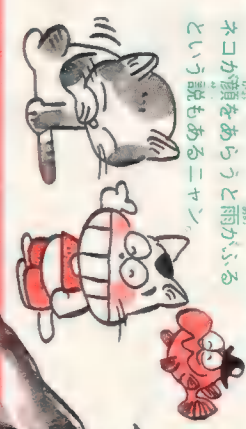 ネコが顔をあらうと雨がふる
という説もあるニャン。